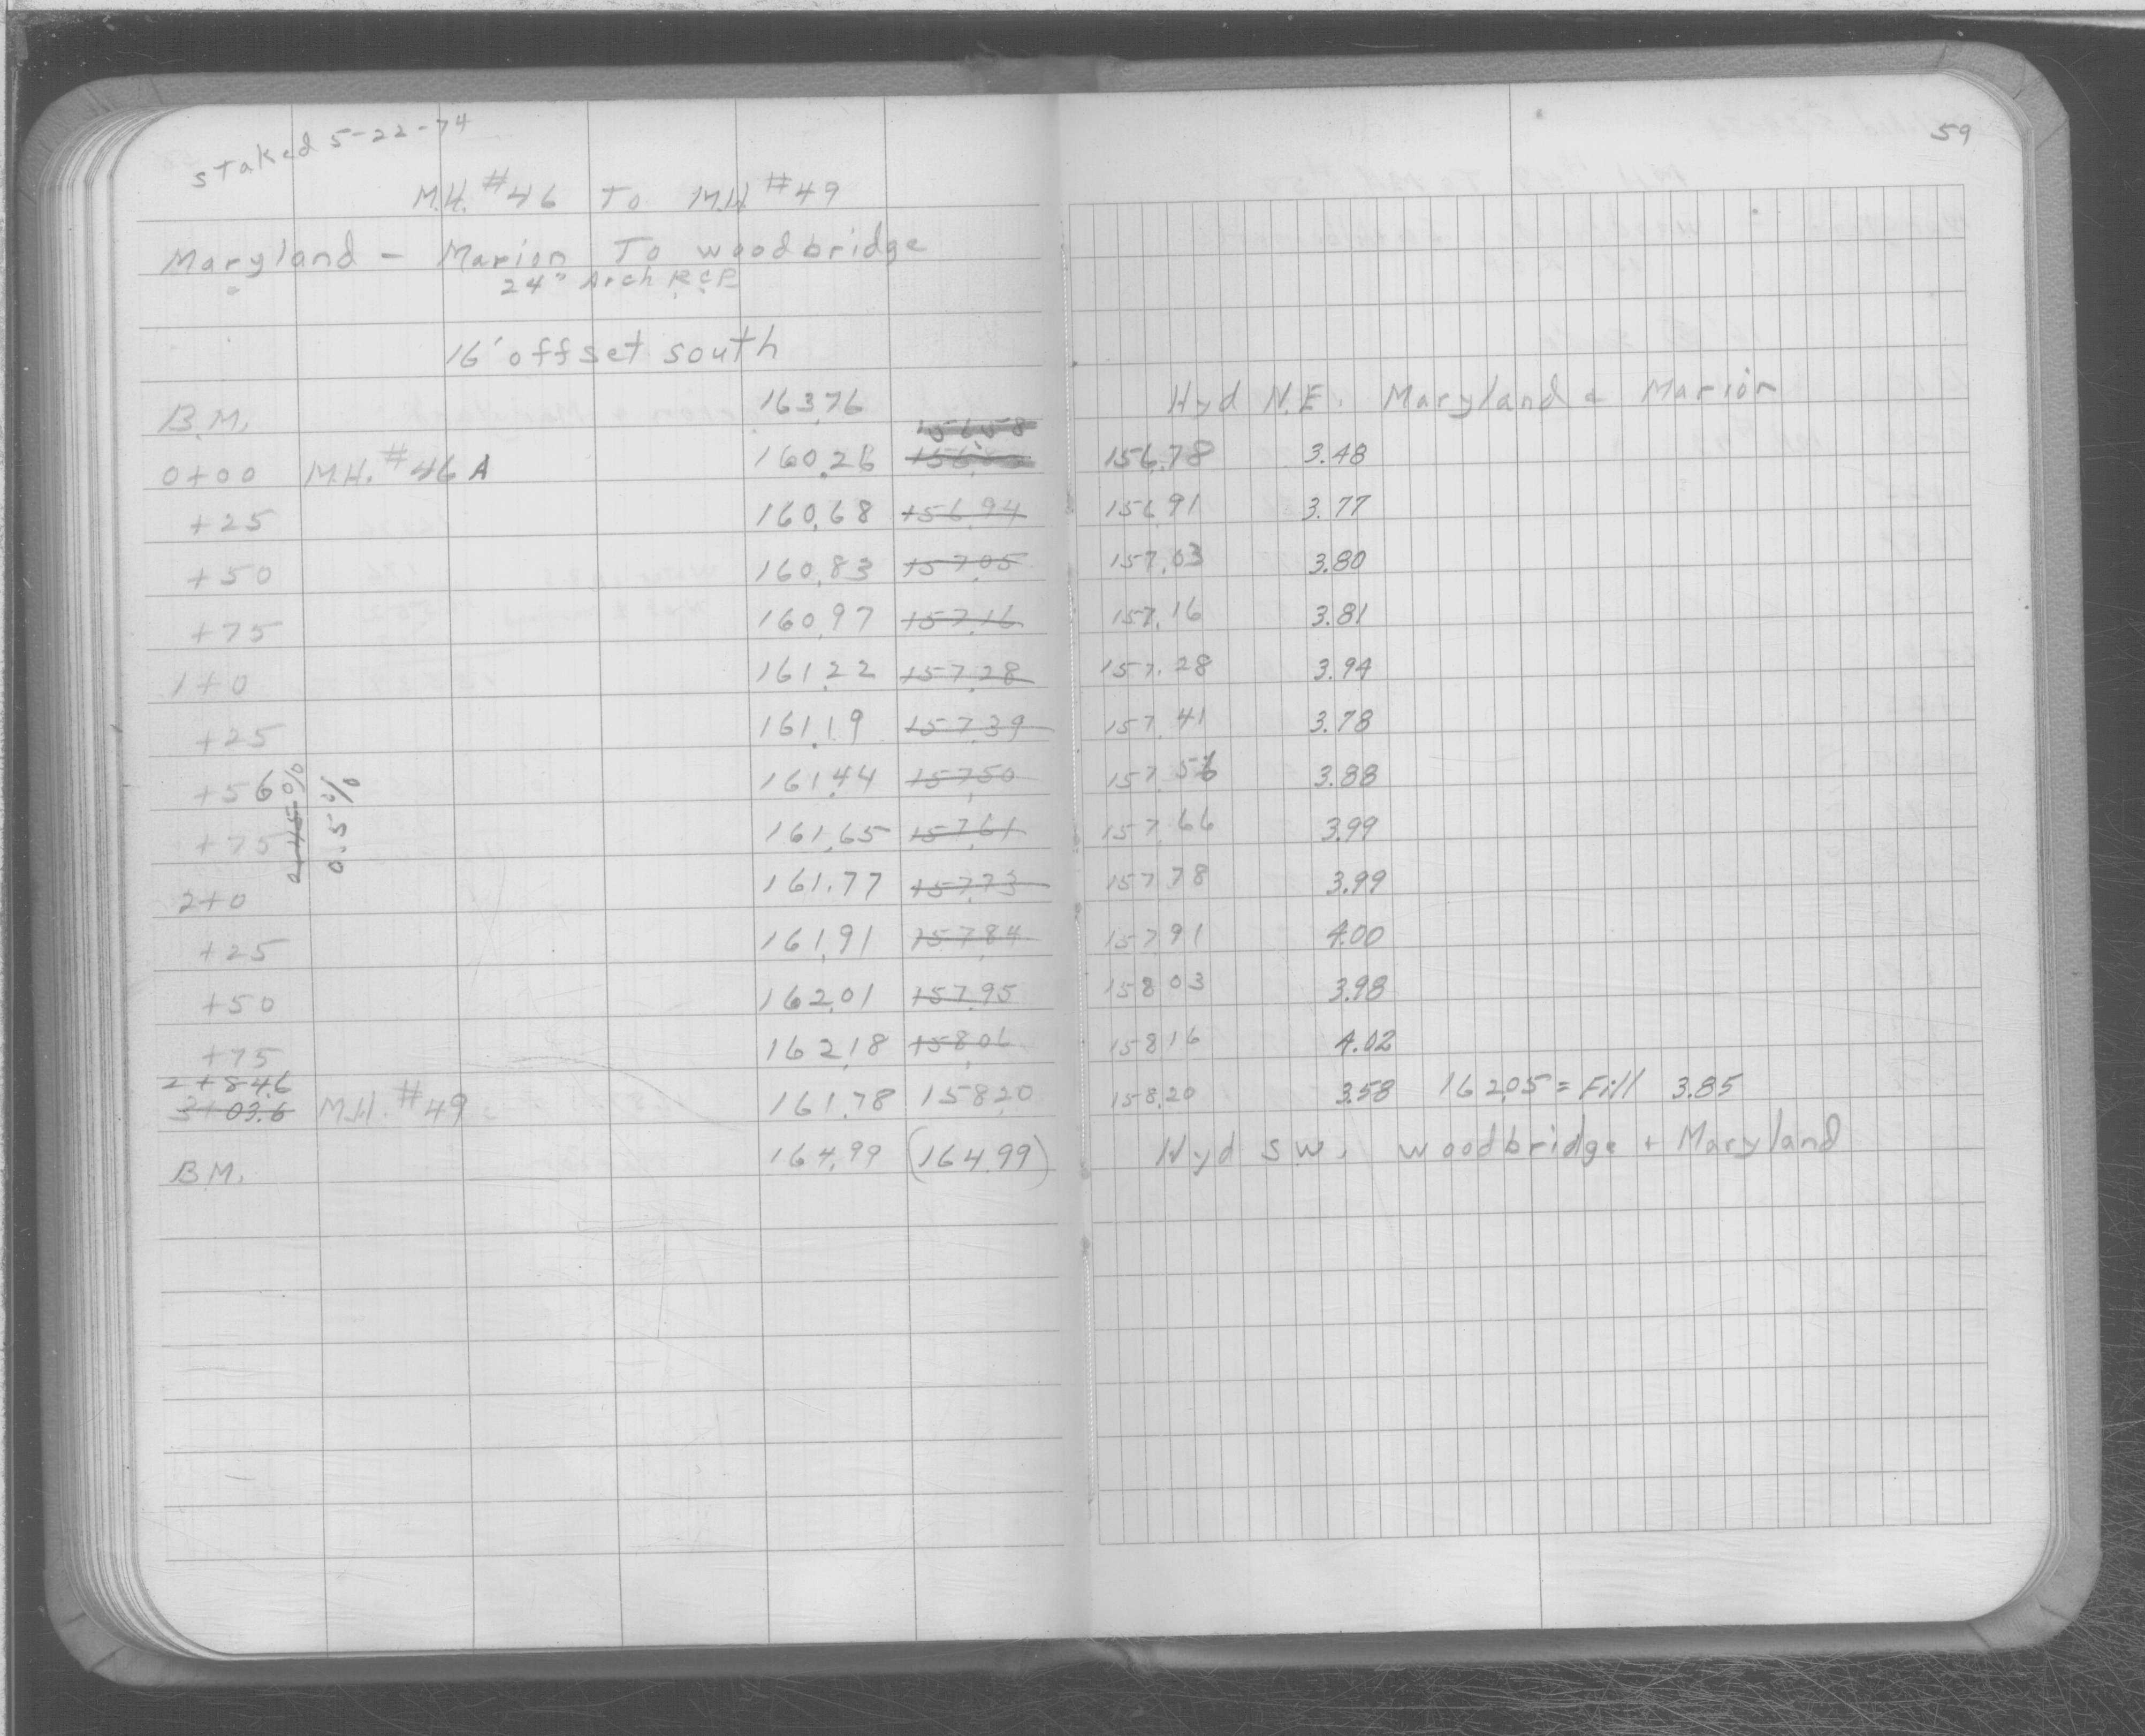 59
staked 5-22-74
M.H. #46 To M.H. #49
Maryland - Marion To woodbridge
24" Arch RCP
16' offset south
B.M. 163.76 Hyd N.E. Maryland & Marion
156.58
0+00 M.H. #46 A 160.26 156.78 3.48
+25 160.68 156.94 156.91 3.77
+50 160.83 157.05 157.03 3.80
+75 160.97 157.16 157.16 3.81
1+0 161.22 157.28 157.28 3.94
+25 161.19 157.39 157.41 3.78
+56 161.44 157.50 157.56 3.88
+75 161.65 157.61 157.66 3.99
0.45% 0.5%
2+0 161.77 157.73 157.78 3.99
+25 161.91 157.84 157.91 4.00
+50 162.01 157.95 158.03 3.98
+75 162.18 158.06 158.16 4.02
2+84.6
3+03.6 M.H. #49 161.78 158.20 158.20 3.58 162.05 = Fill 3.85
B.M. 164.99 (164.99) Hyd S.W. woodbridge + Maryland